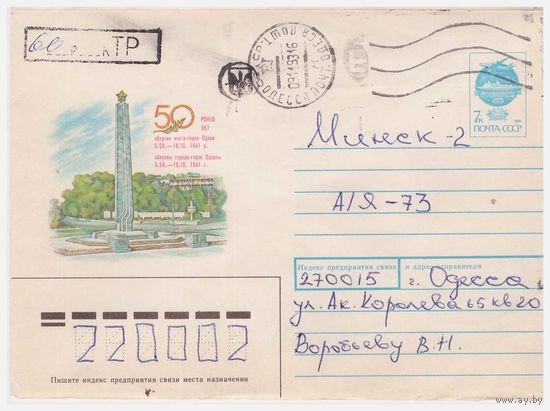 60
ТР
ОДЕССА ПОЧТ
091193 16
7к
ПОЧТА СССР
50 РОКІВ
ЛЕТ
оборони міста-героя Одеси
5.08.—16.10. 1941 р.
обороны города-героя Одессы
5.08.—16.10. 1941 г.
Минск-2
А/Я-73
Индекс предприятия связи и адрес отправителя
270015 г. Одесса
ул. Ак. Королева 65 кв 20
Воробьеву В.Н.
220002
Пишите индекс предприятия связи места назначения
www.ay.by